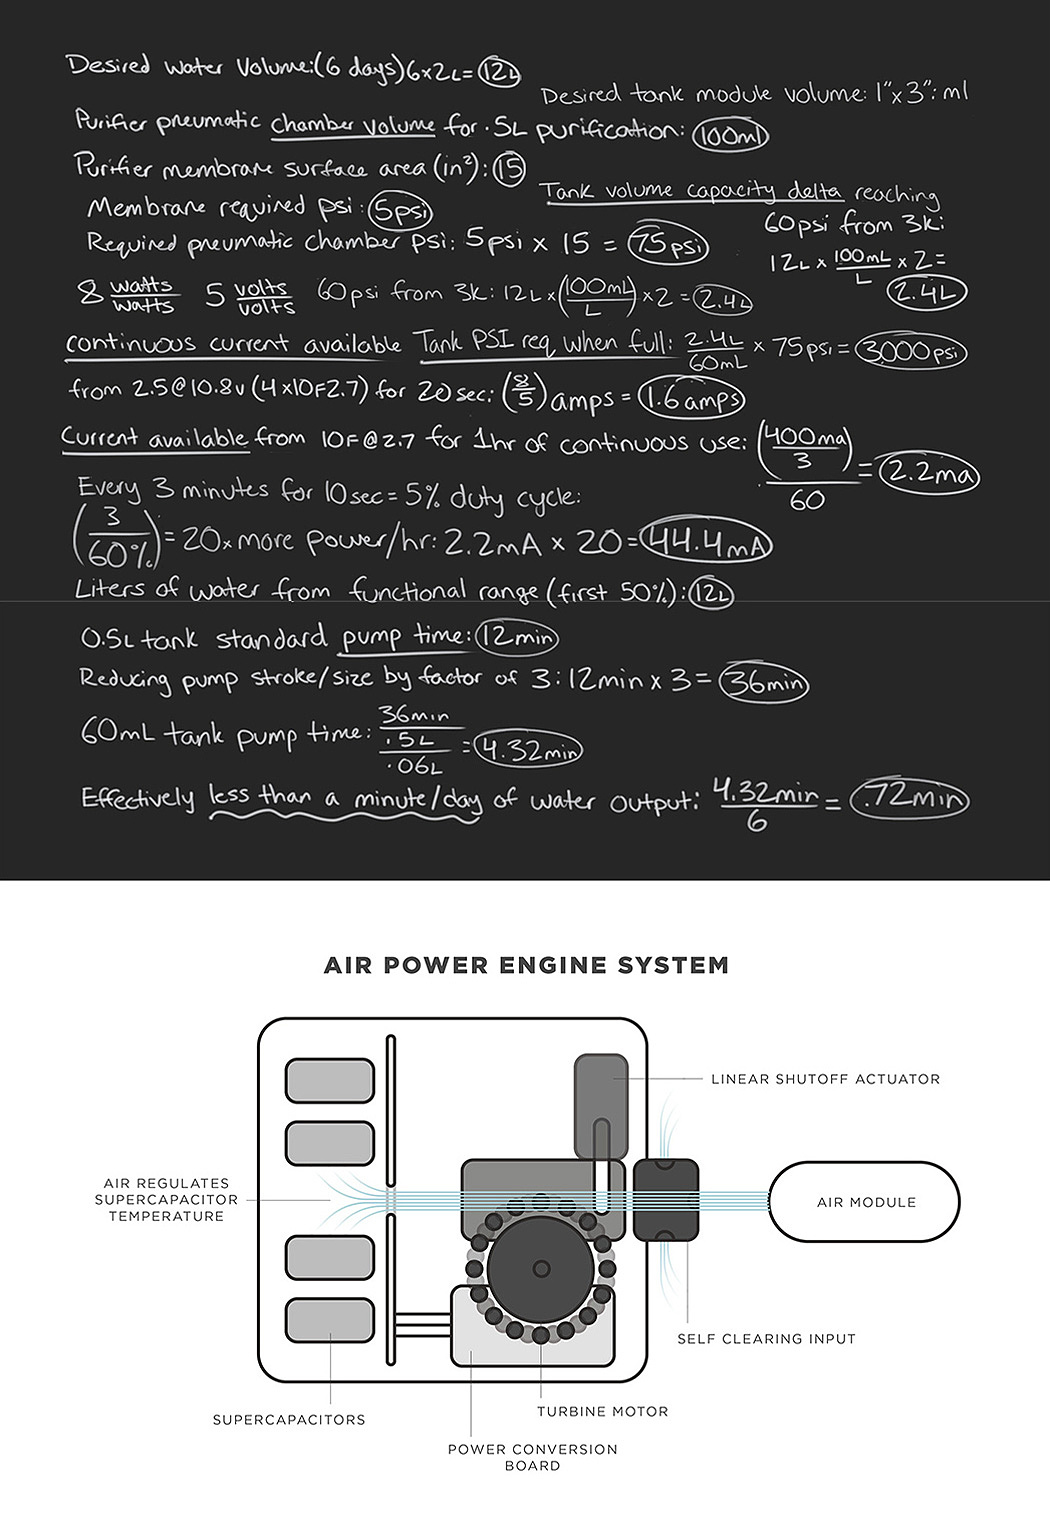 Desired water Volume:(6 days)6x2L=12L
Desired tank module volume: 1"x3": ml
Purifier pneumatic chamber volume for .5L purification: 100ml
Purifier membrane surface area (in²): 15
Tank volume capacity delta reaching
Membrane required psi: 5psi
60psi from 3k:
Required pneumatic chamber psi: 5psi x 15 = 75psi
12L x 100mL/L x 2 = 2.4L
8 watts/watts 5 volts/volts 60psi from 3k: 12L x (100mL/L) x 2 = 2.4L
continuous current available Tank PSI req when full: 2.4L/60mL x 75psi = 3000psi
from 2.5@10.8v (4x10F2.7) for 20sec: (8/5) amps = 1.6amps
Current available from 10F@2.7 for 1hr of continuous use: (400ma/3)/60 = 2.2ma
Every 3 minutes for 10sec = 5% duty cycle:
(3/60%) = 20x more power/hr: 2.2mA x 20 = 44.4mA
Liters of water from functional range (first 50%): 12L
0.5L tank standard pump time: 12min
Reducing pump stroke/size by factor of 3: 12min x 3 = 36min
60mL tank pump time: 36min/.5L/.06L = 4.32min
Effectively less than a minute/day of water output: 4.32min/6 = .72min
AIR POWER ENGINE SYSTEM
LINEAR SHUTOFF ACTUATOR
AIR REGULATES
SUPERCAPACITOR
TEMPERATURE
AIR MODULE
SELF CLEARING INPUT
SUPERCAPACITORS
TURBINE MOTOR
POWER CONVERSION
BOARD